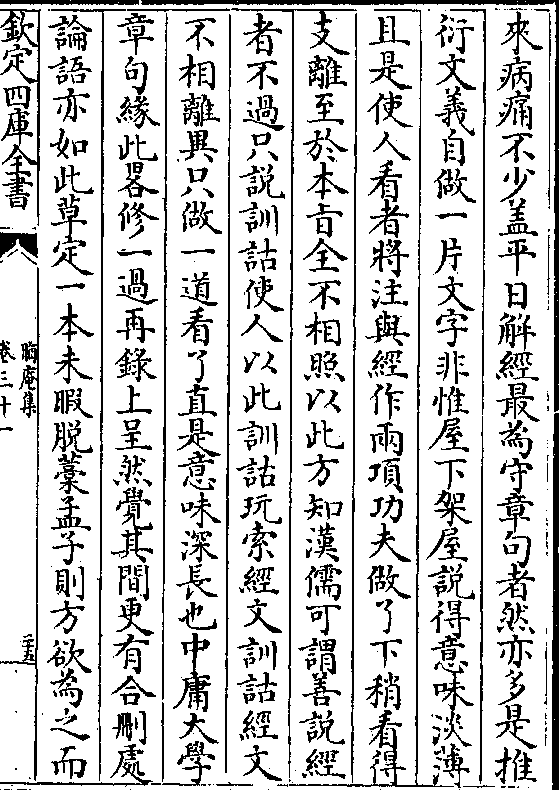 來病痛不少盖平日解經最為守章句者然亦多是推
衍文義自做一片文字非惟屋下架屋說得意味淡薄
且是使人看者將注與經作兩項功夫做了下稍看得
支離至於本旨全不相照以此方知漢儒可謂善說經
者不過只說訓詁使人以此訓詁玩索經文訓詁經文
不相離異只做一道看了直是意味深長也中庸大學
章句緣此畧修一過再錄上呈然覺其間更有合刪處
論語亦如此草定一本未暇脫藁孟子則方欲為之而
欽定四庫全書
晦庵集
卷三十一
二五